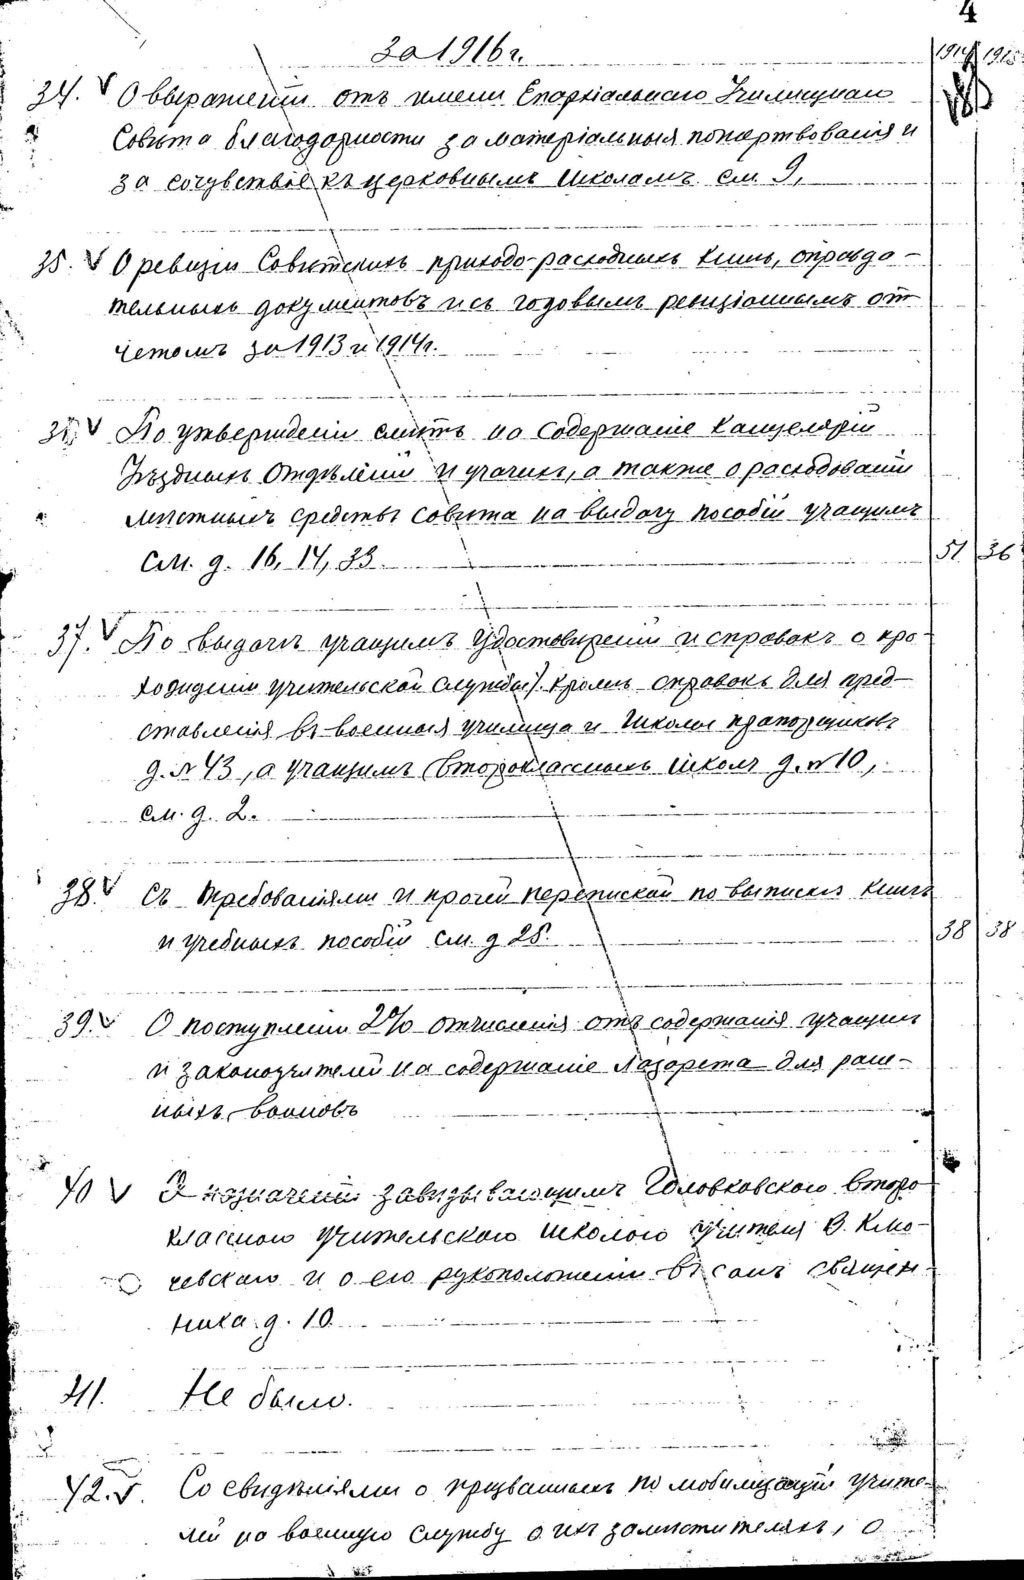 4
За 1916 г.
1914 1915
34. О выраженіи отъ имени Епархіальнаго Училищнаго
Совѣта благодарности за матеріальныя пожертвованія и
за сочувствіе къ церковнымъ школамъ см. 9,
35. О ревизіи Совѣтскихъ приходо-расходныхъ книгъ, оправда-
тельныхъ документовъ и съ годовымъ ревизіоннымъ от-
четомъ за 1913 и 1914 г.
По утвержденіи смѣтъ на содержаніе Канцелярій
Уѣздныхъ Отдѣленій и учащихъ, а также о расходованіи
мѣстныхъ средствъ Совѣта на выдачу пособій учащимъ
см. д. 16, 14, 33. 51 36
37. По выдачѣ учащимъ удостовѣреній и справокъ о про-
хожденіи учительской службы). Кромѣ справокъ для пред-
ставленія въ военныя училища и школы прапорщиковъ
д. № 43, а учащимъ второклассныхъ школъ д. № 10,
см. д. 2.
38. Съ требованіями и прочей перепиской по выпискѣ книгъ
и учебныхъ пособій см. д 25. 38 38
39. О поступленіи 2% отчисленія отъ содержанія учащихъ
и законоучителей на содержаніе Лазарета для ране-
ныхъ воиновъ
40 О назначеніи завѣдывающимъ Головковскою второ-
классною учительскою школою учителя В. Кло-
чевскаго и о его рукоположеніи въ санъ священ-
ника д. 10.
41. Не было.
42. Со свѣдѣніями о призванныхъ по мобилизаціи учите-
лей на военную службу о ихъ замѣстителяхъ, о